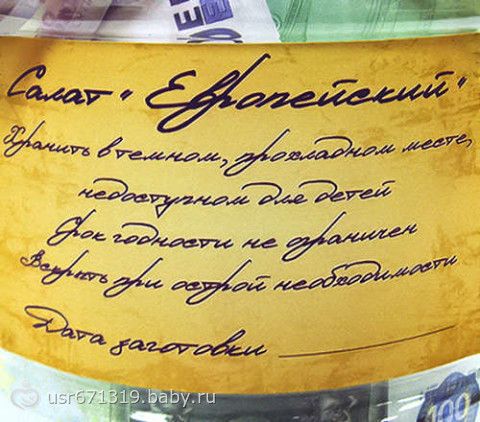 Салат "Европейский"
Хранить в темном, прохладном месте,
недоступном для детей
Срок годности не ограничен
Вскрыть при острой необходимости
Дата заготовки
100
usr671319.baby.ru